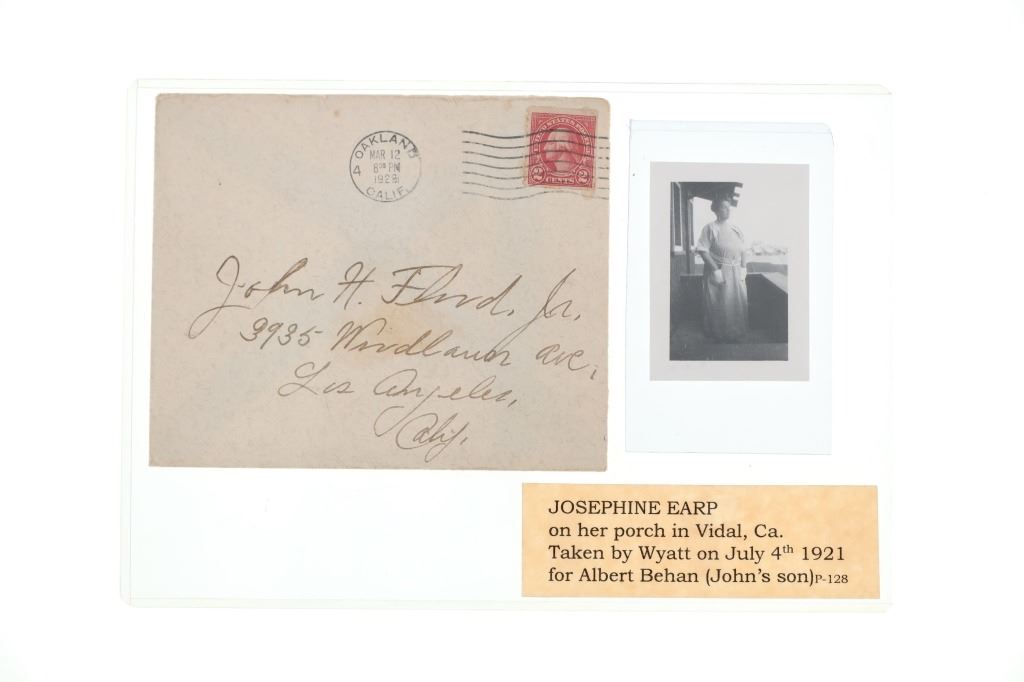 OAKLAND
MAR 12
8 30 PM
1928
4
CALIF.
UNITED STATES POSTAGE
2 CENTS 2
John H. Flood, Jr.
3935 Woodlawn ave,
Los Angeles,
Calif.
JOSEPHINE EARP
on her porch in Vidal, Ca.
Taken by Wyatt on July 4th 1921
for Albert Behan (John's son)P-128